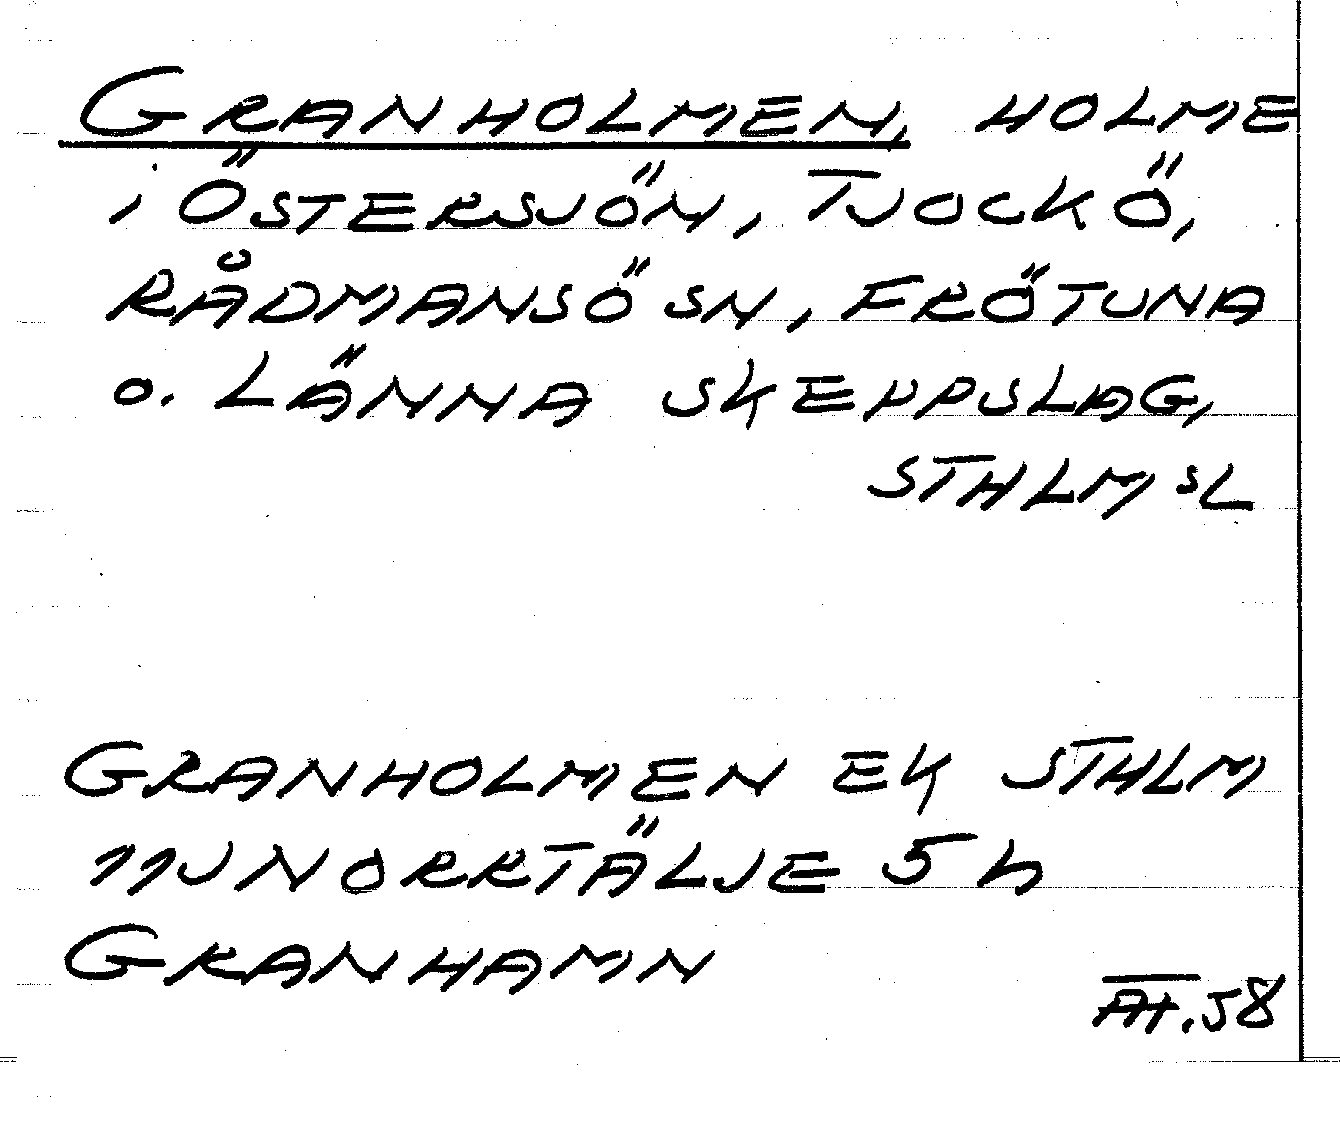 GRANHOLMEN, HOLME
i ÖSTERSJÖN, TJOCKÖ,
RÅDMANSÖ SN, FRÖTUNA
o. LÄNNA SKEPPSLAG,
STHLM SL
GRANHOLMEN EK STHLM
11J NORRTÄLJE 5h
GRANHAMN
AH.58